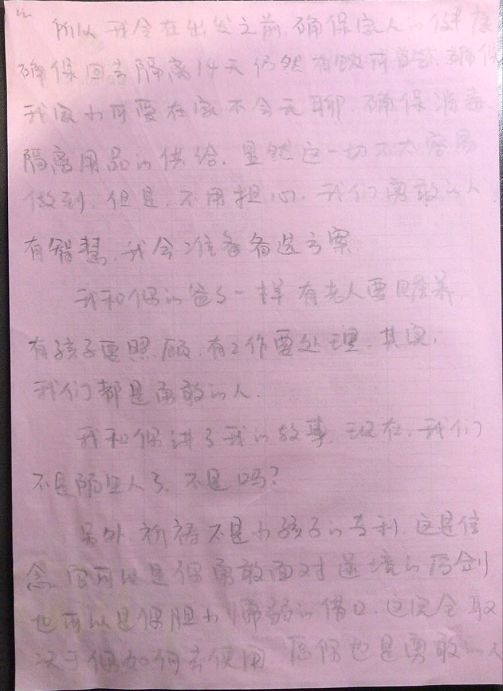 所以我会在出发之前,确保家人的健康
确保回去隔离14天仍然
我家小 要在家不会无聊,确保消毒
隔离用品的供给。显然这一切不太容易
做到,但是,不用担心,我们勇敢的人
有智慧,我会准备备选方案。
我和你的爸爸一样有老人要赡养,
有孩子要照顾,有工作要处理,其实,
我们都是勇敢的人.
我和你讲了我的故事,现在,我们
不是陌生人了,不是吗?
另外,祈祷不是小孩子的专利,这是信
念,它可以是你勇敢面对逆境的
也可以是你胆小懦弱的借口,这完全取
决于你如何去使用 愿你也是勇敢的人